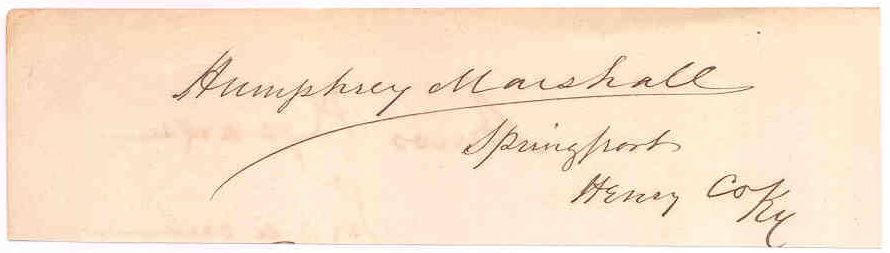 Humphrey Marshall
Springport
Henry Co Ky